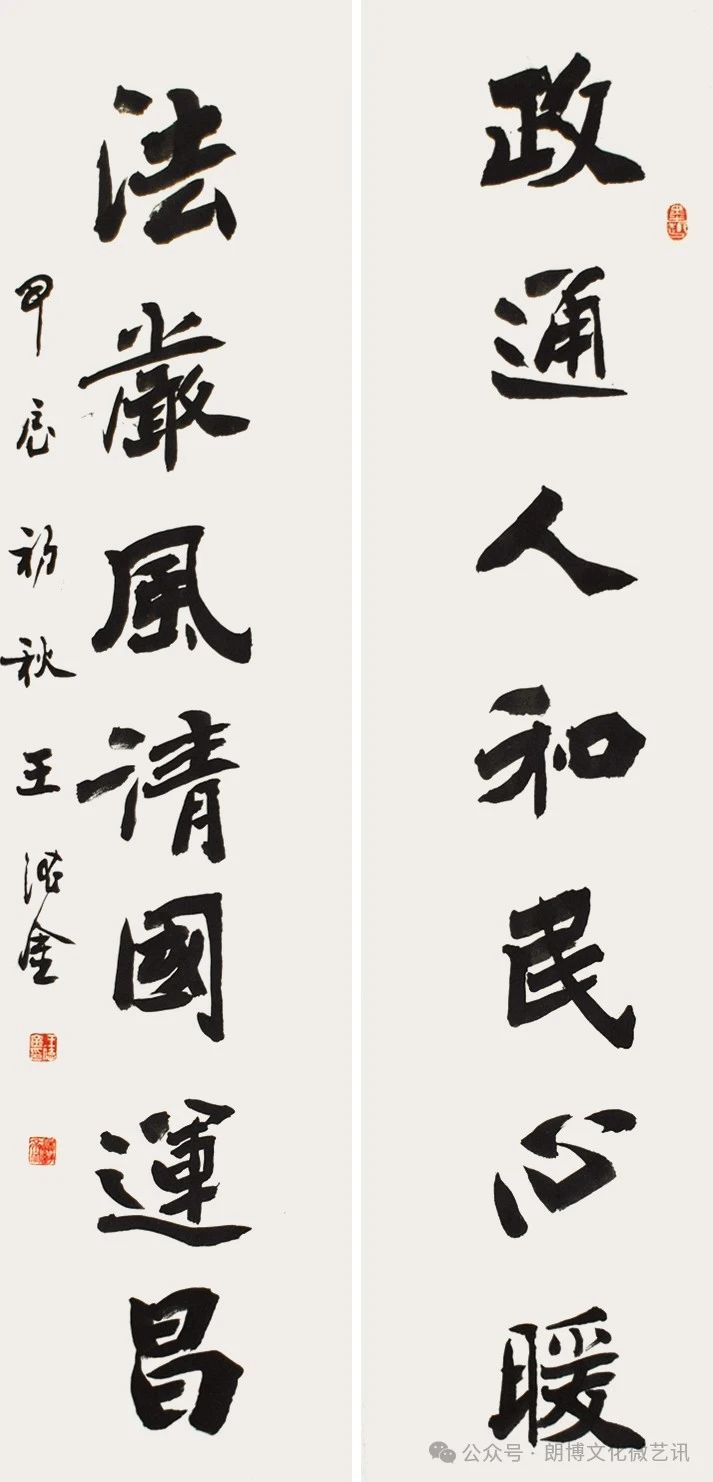 政通人和民心暖
法嚴風清國運昌
甲辰初秋王洪金
公众号·朗博文化微艺讯